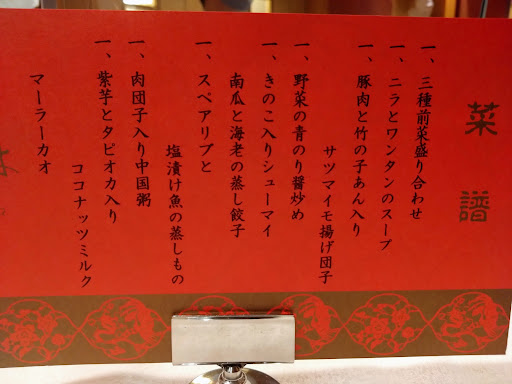 菜譜
一、三種前菜盛り合わせ
一、ニラとワンタンのスープ
一、豚肉と竹の子あん入り
サツマイモ揚げ団子
一、野菜の青のり醤炒め
一、きのこ入りシューマイ
南瓜と海老の蒸し餃子
一、スペアリブと
塩漬け魚の蒸しもの
一、肉団子入り中国粥
一、紫芋とタピオカ入り
ココナッツミルク
マーラーカオ